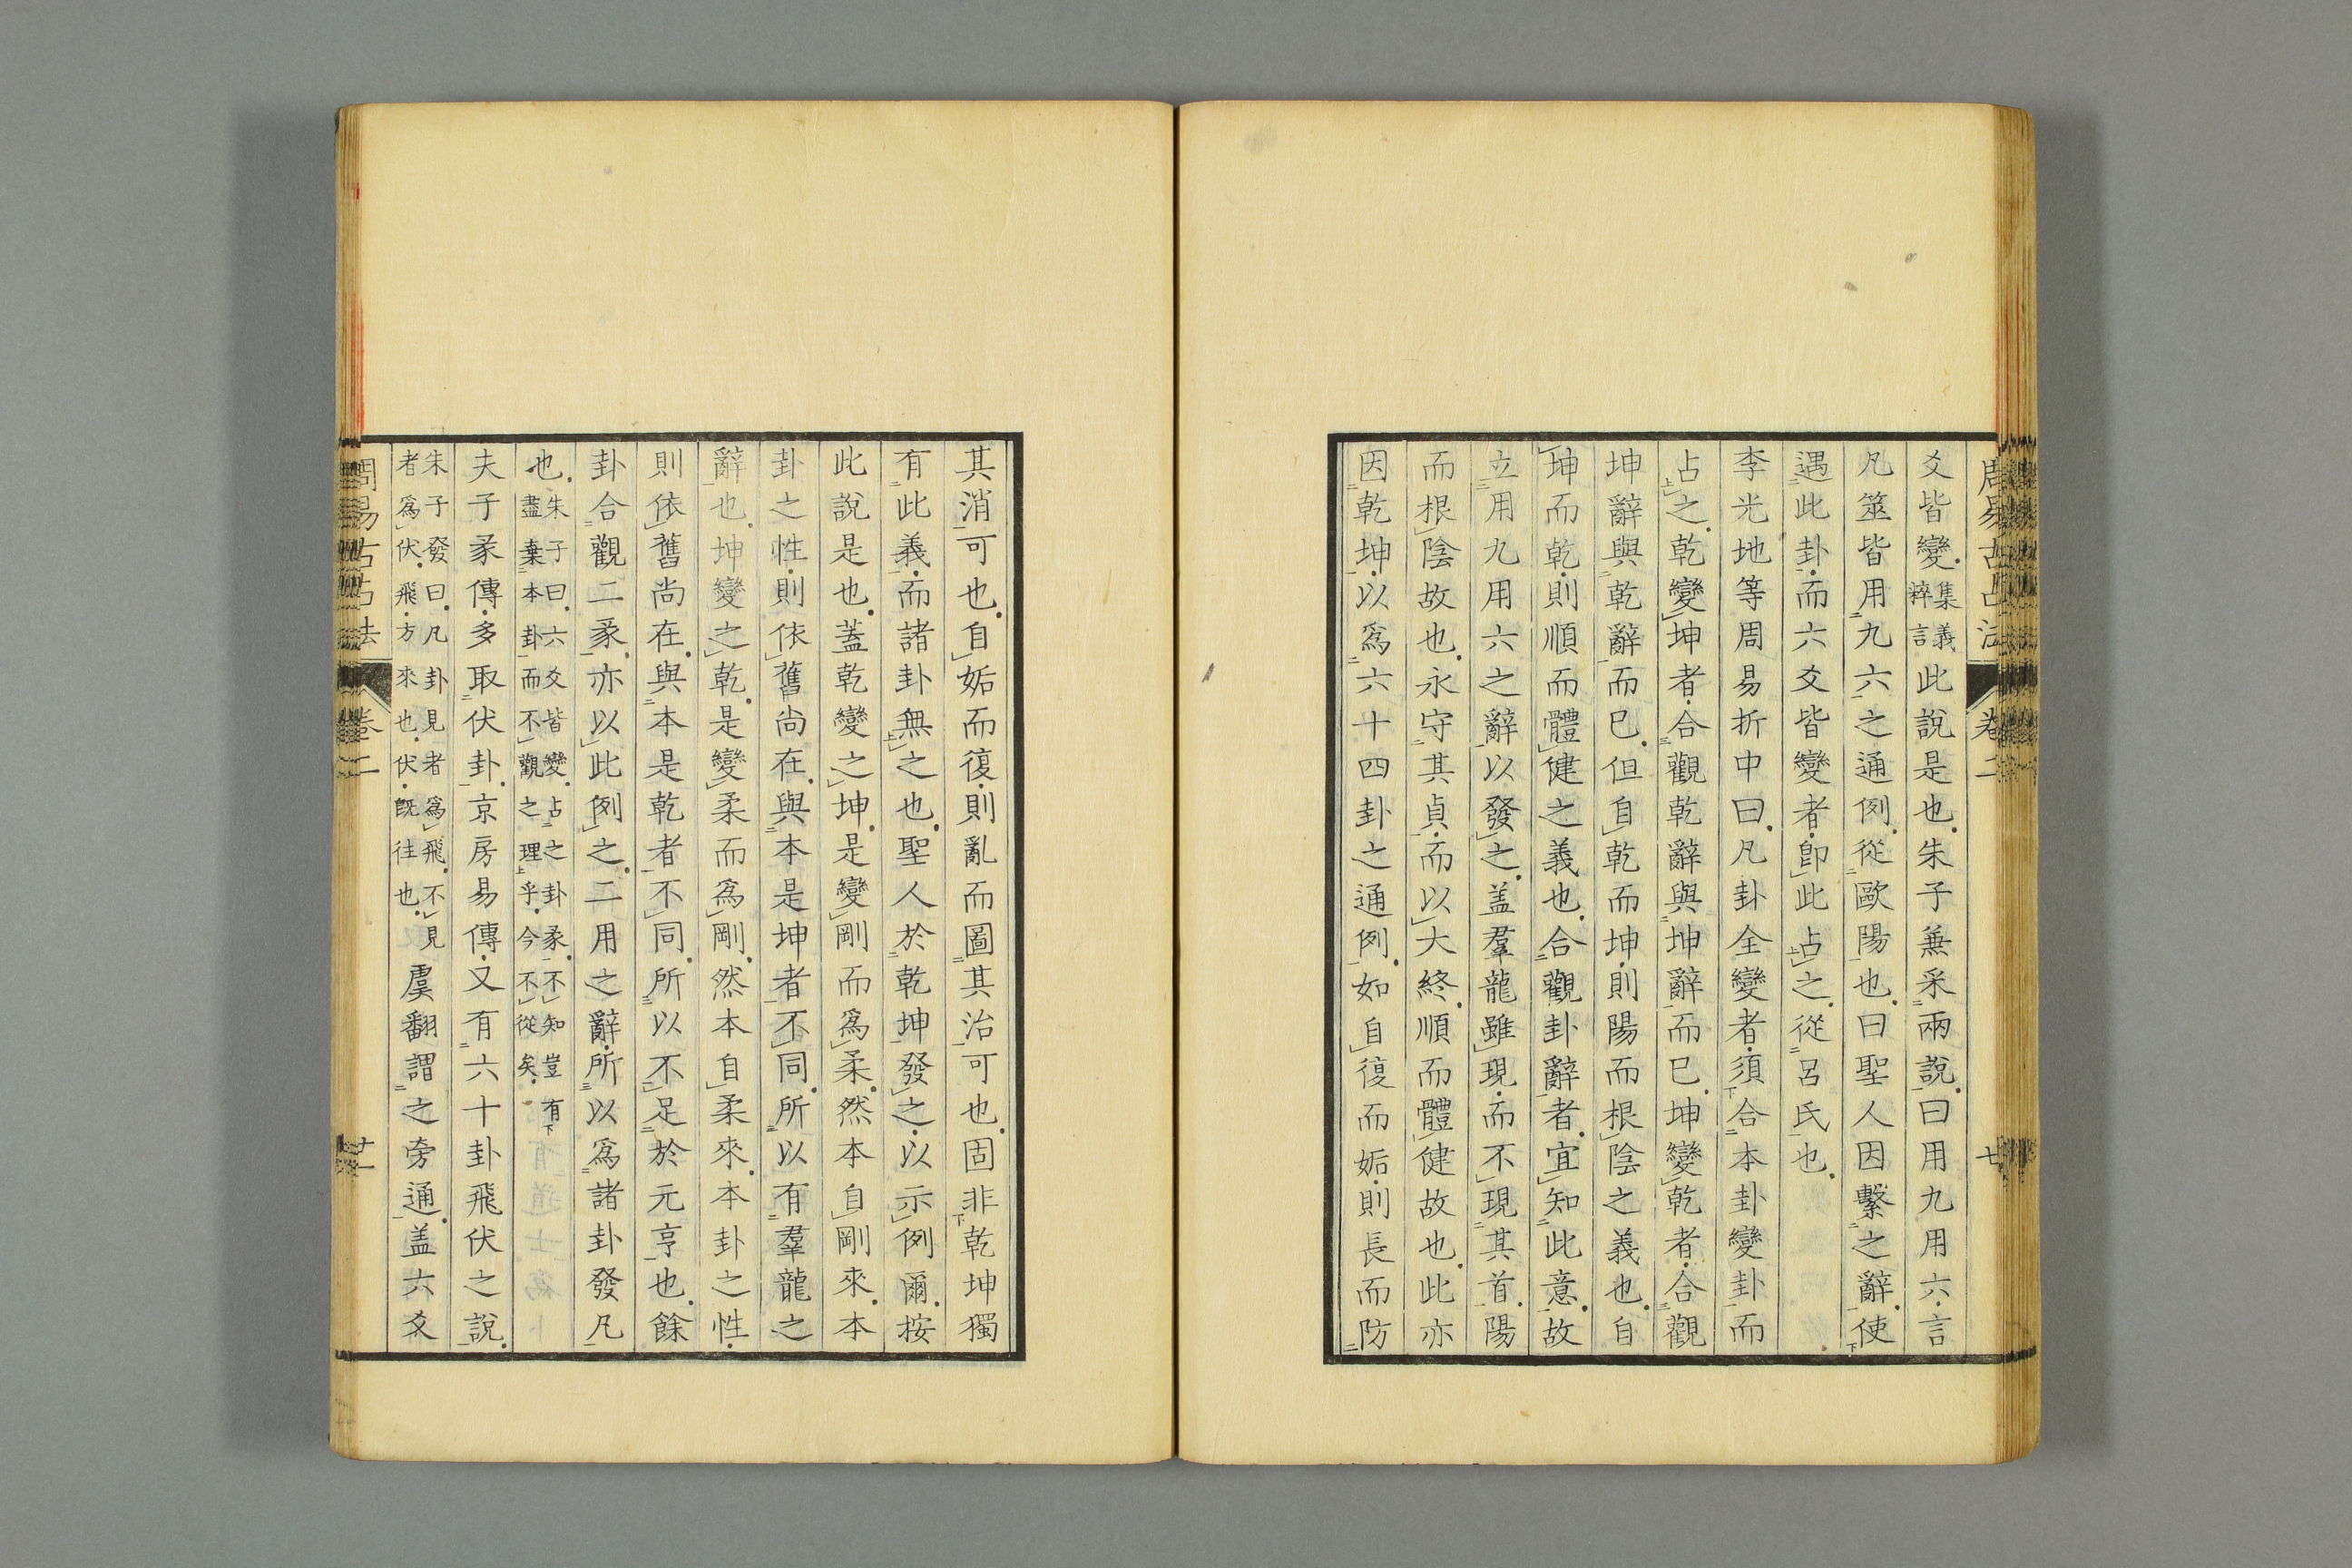 周易古占法 卷二 七
爻皆變集義粹言此說是也朱子兼采兩說曰用九用六言
凡筮皆用九六之通例從歐陽也曰聖人因繫之辭使
遇此卦而六爻皆變者卽此占之從呂氏也
李光地等周易折中曰凡卦全變者須合本卦變卦而
占之乾變坤者合觀乾辭與坤辭而已坤變乾者合觀
坤辭與乾辭而已但自乾而坤則陽而根陰之義也自
坤而乾則順而體健之義也合觀卦辭者宜知此意故
立用九用六之辭以發之盖羣龍雖現而不現其首陽
而根陰故也永守其貞而以大終順而體健故也此亦
因乾坤以爲六十四卦之通例如自復而姤則長而防
其消可也自姤而復則亂而圖其治可也固非乾坤獨
有此義而諸卦無之也聖人於乾坤發之以示例爾按
此說是也蓋乾變之坤是變剛而爲柔然本自剛來本
卦之性則依舊尚在與本是坤者不同所以有羣龍之
辭也坤變之乾是變柔而爲剛然本自柔來本卦之性
則依舊尚在與本是乾者不同所以不足於元亨也餘
卦合觀二彖亦以此例之二用之辭所以爲諸卦發凡
也朱子曰六爻皆變占之卦彖不知豈有
盡棄本卦而不觀之理乎今不從矣
夫子彖傳多取伏卦京房易傳又有六十卦飛伏之說
朱子發曰凡卦見者爲飛不見
者爲伏飛方來也伏旣往也虞翻謂之旁通盖六爻
周易古占法 卷二